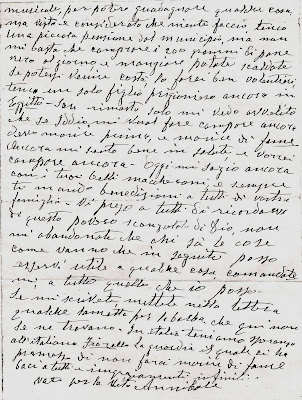 musicale per poter guadagnare qualche cosa,
ma visto e considerato che niente faccio tengo
una piccola pensione dal municipio, ma non
mi basta che comprare i 100 grammi di pane
nero al giorno, e mangiare patate scaldate
Se potessi venire costà lo farei ben volentieri
tengo un solo figlio prigioniero ancora in
Egitto - Son rimasto solo mi vedo avvilito
che se Iddio mi vuol fare campare ancora
devo morire prima, e morire di fame
Ancora mi sento bene in salute e vorrei
campare ancora - Oggi mi sazio ancora
con i tuoi belli maccheroni, e sempre
ti mando benedizioni a tutti di vostra
famiglia - Vi prego a tutti di ricordarvi
di questo povero scongolato di Dio, non
mi abbandonate che chi sà le cose
come vanno che in seguito posso
esservi utile a qualche cosa, comandate
mi a tutto quello che io posso.
Se mi scrivete mettete nella lettera
qualche lametta per la barba che qui non
se ne trovano. In Italia teniamo
all'italiano Fiorello la guardia il quale ci ha
promesso di non farci morire di fame
Baci a tutti e ringraziamenti infiniti.
Vostro Annibale